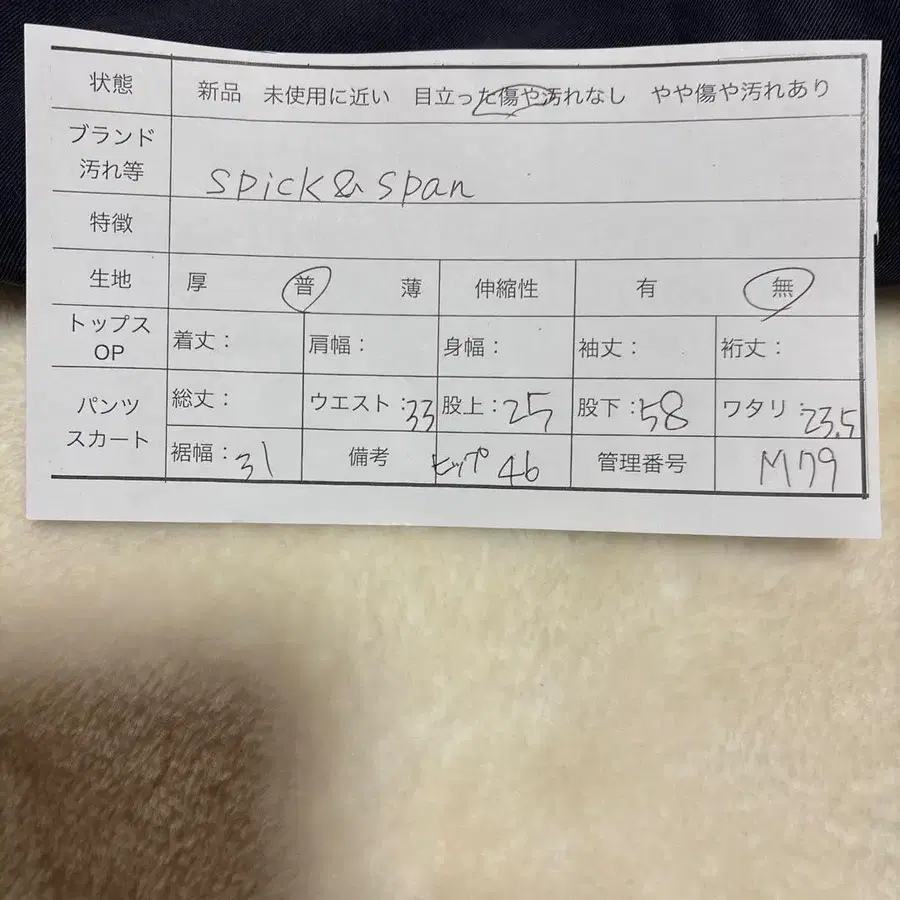 状態 新品 未使用に近い 目立った傷や汚れなし やや傷や汚れあり
ブランド
汚れ等
spick&span
特徴
生地 厚 普 薄 伸縮性 有 無
トップス
OP
着丈: 肩幅: 身幅: 袖丈: 裄丈:
パンツ
スカート
総丈: ウエスト:33 股上:25 股下:58 ワタリ:23.5
裾幅:31 備考 ヒップ 46 管理番号 M79